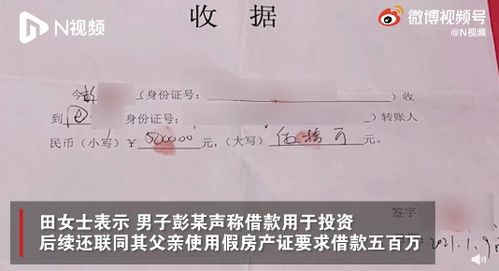 N视频
微博视频号
@N视频
收 据
今 (身份证号: )收
到 身份证号: )转账人
民币(小写)¥ 500000 元,(大写) 伍拾万 元。
签
2021.1.9
田女士表示 男子彭某声称借款用于投资
后续还联同其父亲使用假房产证要求借款五百万